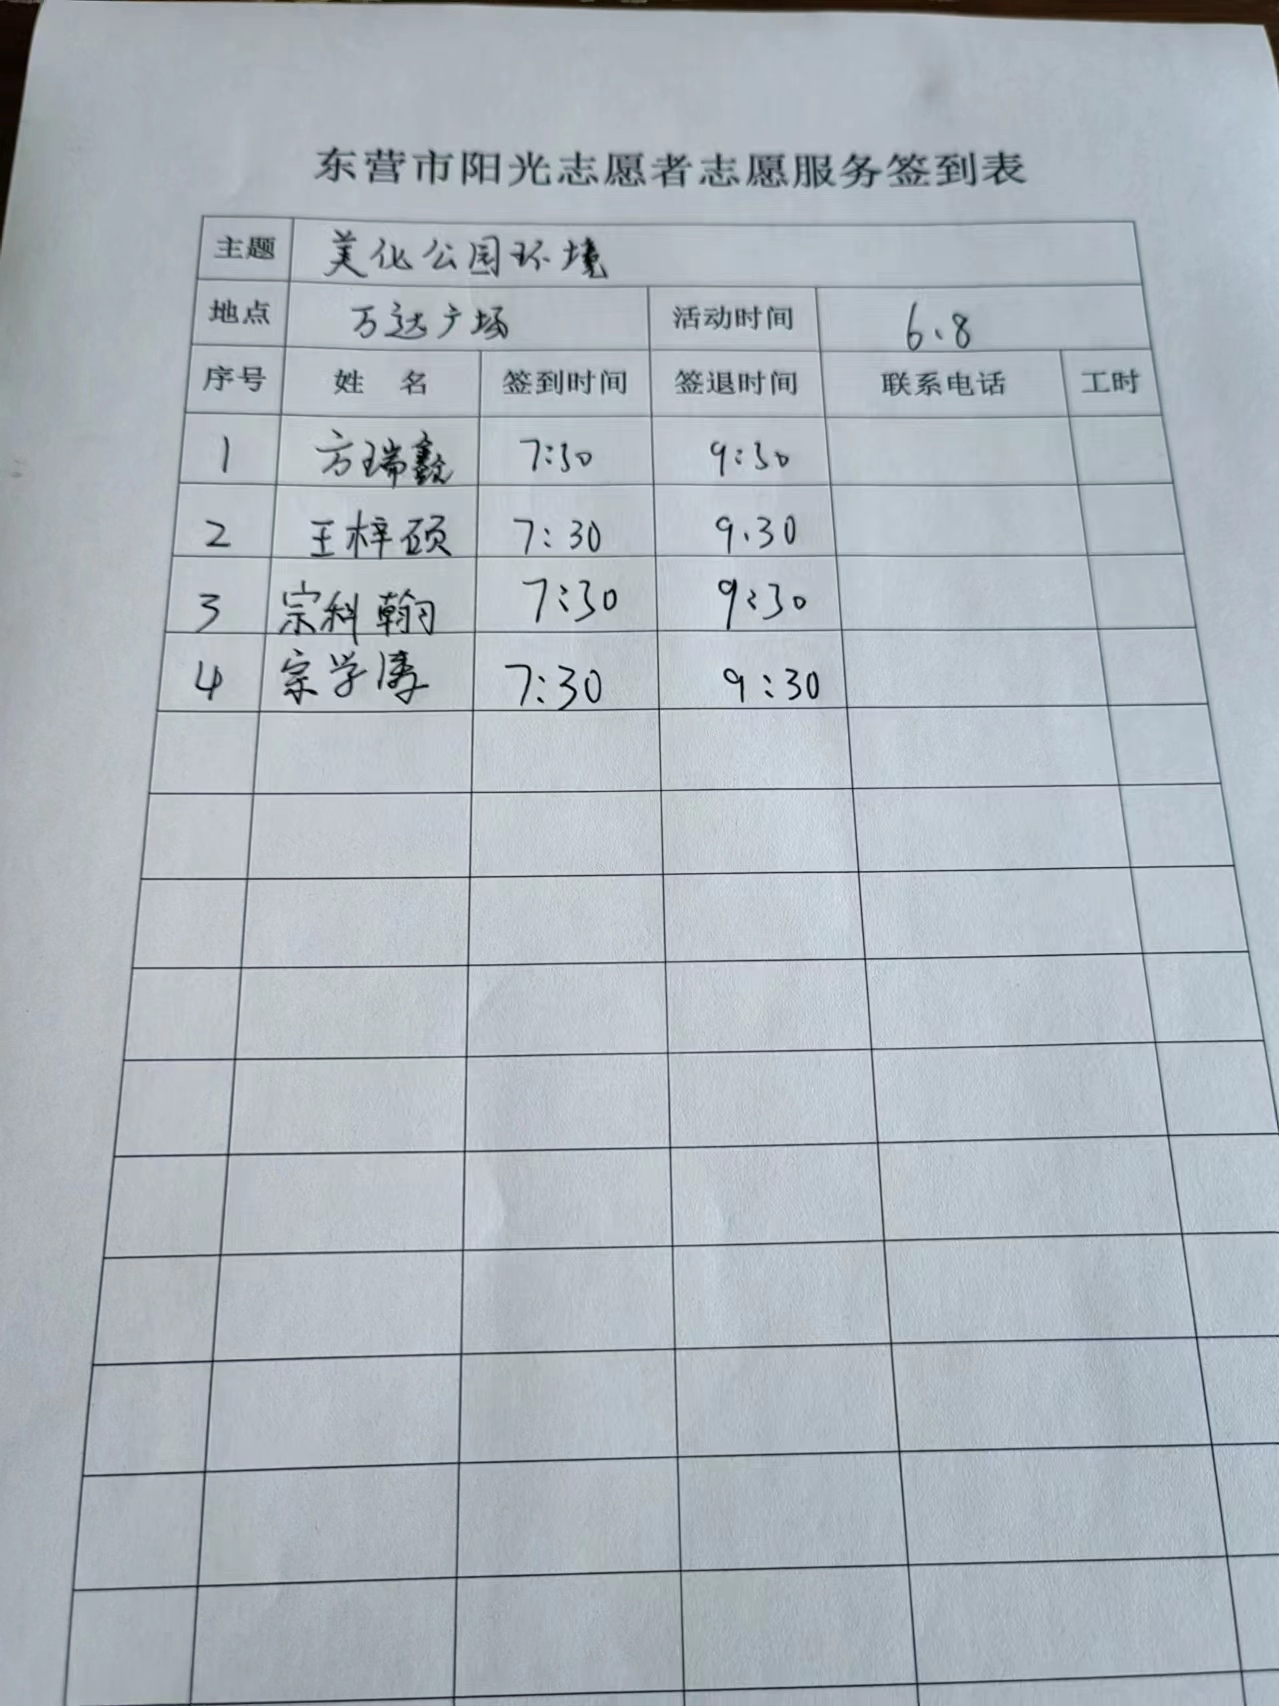 东营市阳光志愿者志愿服务签到表
主题 美化公园环境
地点 万达广场 活动时间 6.8
序号 姓名 签到时间 签退时间 联系电话 工时
1 方瑞鑫 7:30 9:30
2 王梓硕 7:30 9.30
3 宗科翰 7:30 9:30
4 宗学涛 7:30 9:30